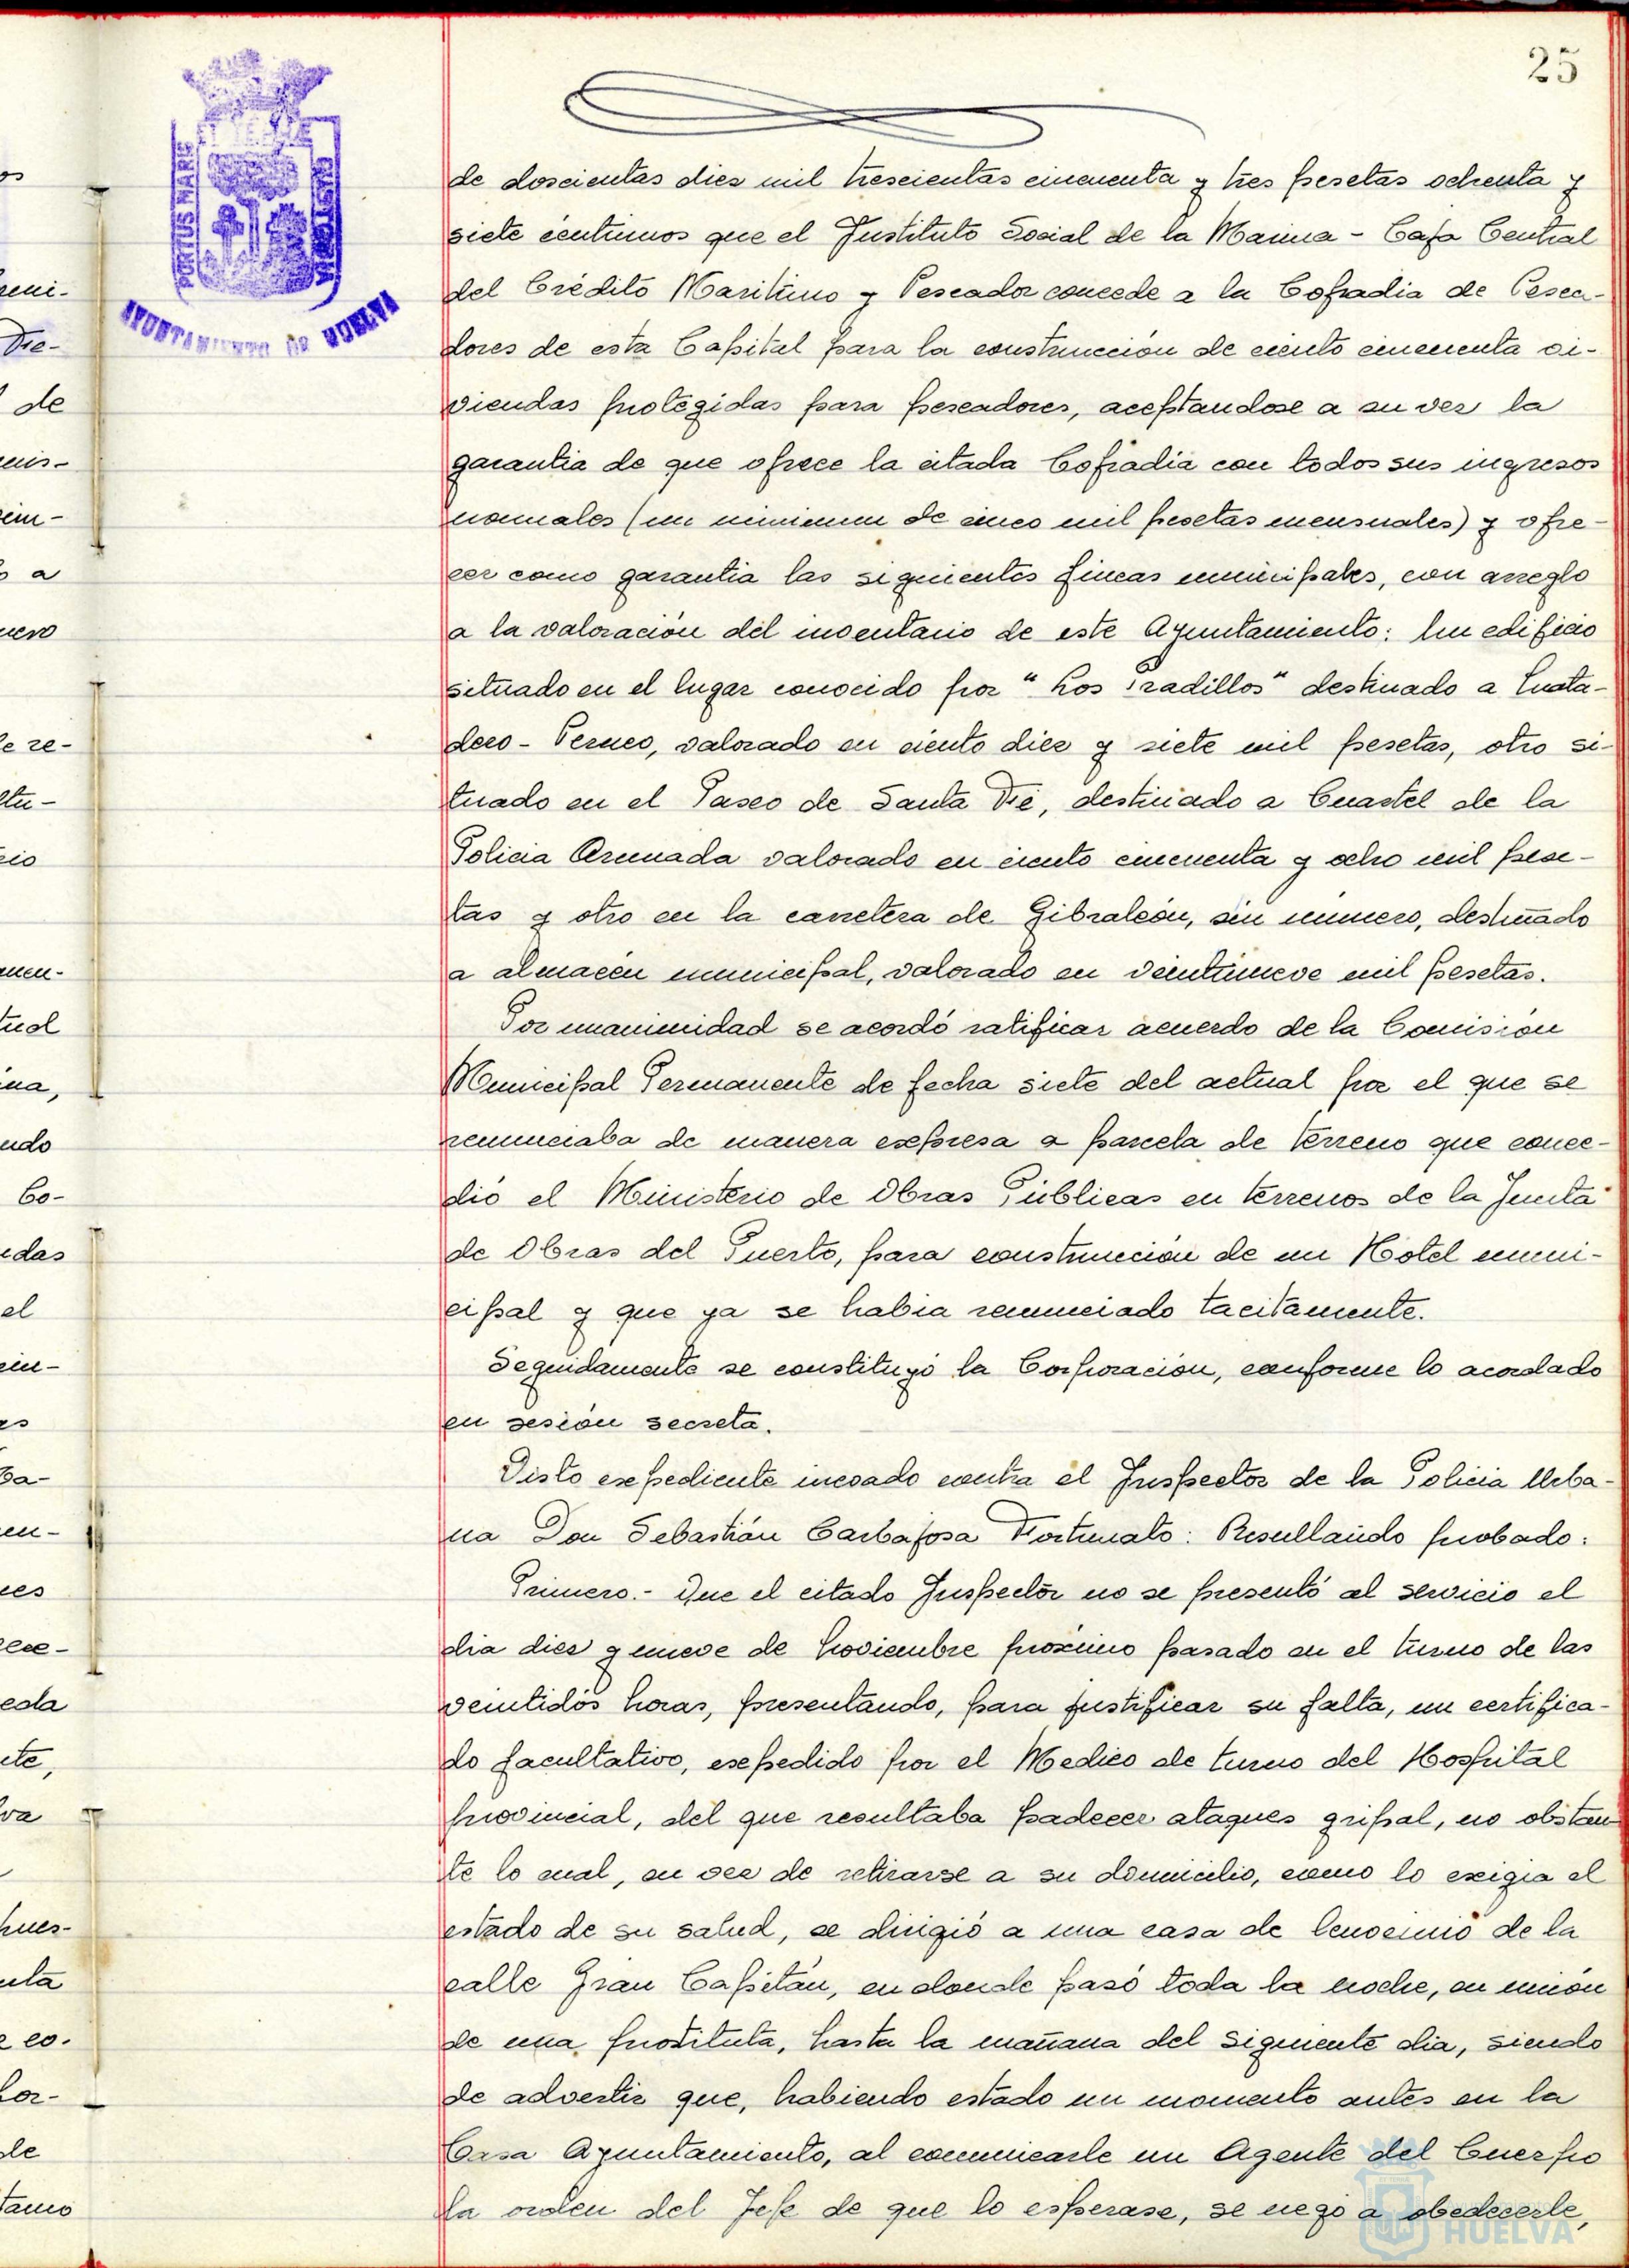 25
PORTUS MARIS
ET TERRAE
CUSTODIA
AYUNTAMIENTO DE HUELVA
de doscientas diez mil trescientas cincuenta y tres pesetas ochenta y
siete céntimos que el Instituto Social de la Marina - Caja Central
del Crédito Maritimo y Pescador concede a la Cofradia de Pesca-
dores de esta Capital para la construcción de ciento cincuenta vi-
viendas protegidas para pescadores, aceptandose a su vez la
garantia de que ofrece la citada Cofradia con todos sus ingresos
normales (un minimum de cinco mil pesetas mensuales) y ofre-
cer como garantia las siguientes fincas municipales, con arreglo
a la valoración del inventario de este Ayuntamiento: Un edificio
situado en el lugar conocido por "Los Pradillos" destinado a
dero - Porcino, valorado en ciento diez y siete mil pesetas, otro si-
tuado en el Paseo de Santa Fé, destinado a Cuartel de la
Policia Armada valorado en ciento cincuenta y ocho mil pese-
tas y otro en la carretera de Gibraleón, sin número, destinado
a almacén municipal, valorado en veintinueve mil pesetas.
Por unanimidad se acordó ratificar acuerdo de la Comisión
Municipal Permanente de fecha siete del actual por el que se
renunciaba de manera expresa a parcela de terreno que conce-
dió el Ministerio de Obras Públicas en terrenos de la Junta
de Obras del Puerto, para construcción de un Hotel muni-
cipal y que ya se habia renunciado tacitamente.
Seguidamente se constituyó la Corporación, conforme lo acordado
en sesión secreta.
Visto expediente incoado contra el Inspector de la Policia Urba-
na Don Sebastián Carbajosa Fortunato: Resultando probado:
Primero.- Que el citado Inspector no se presentó al servicio el
dia diez y nueve de Noviembre próximo pasado en el turno de las
veintidós horas, presentando, para justificar su falta, un certifica-
do facultativo, expedido por el Medico de turno del Hospital
provincial, del que resultaba padecer ataques gripal, no obstan-
te lo cual, en vez de retirarse a su domicilio, como lo exigia el
estado de su salud, se dirigió a una casa de lenocinio de la
calle Gran Capitán, en donde pasó toda la noche, en unión
de una prostituta, hasta la mañana del siguiente dia, siendo
de advertir que, habiendo estado un momento antes en la
Casa Ayuntamiento, al comunicarle un Agente del Cuerpo
la orden del Jefe de que lo esperase, se negó a obedecerle,
HUELVA